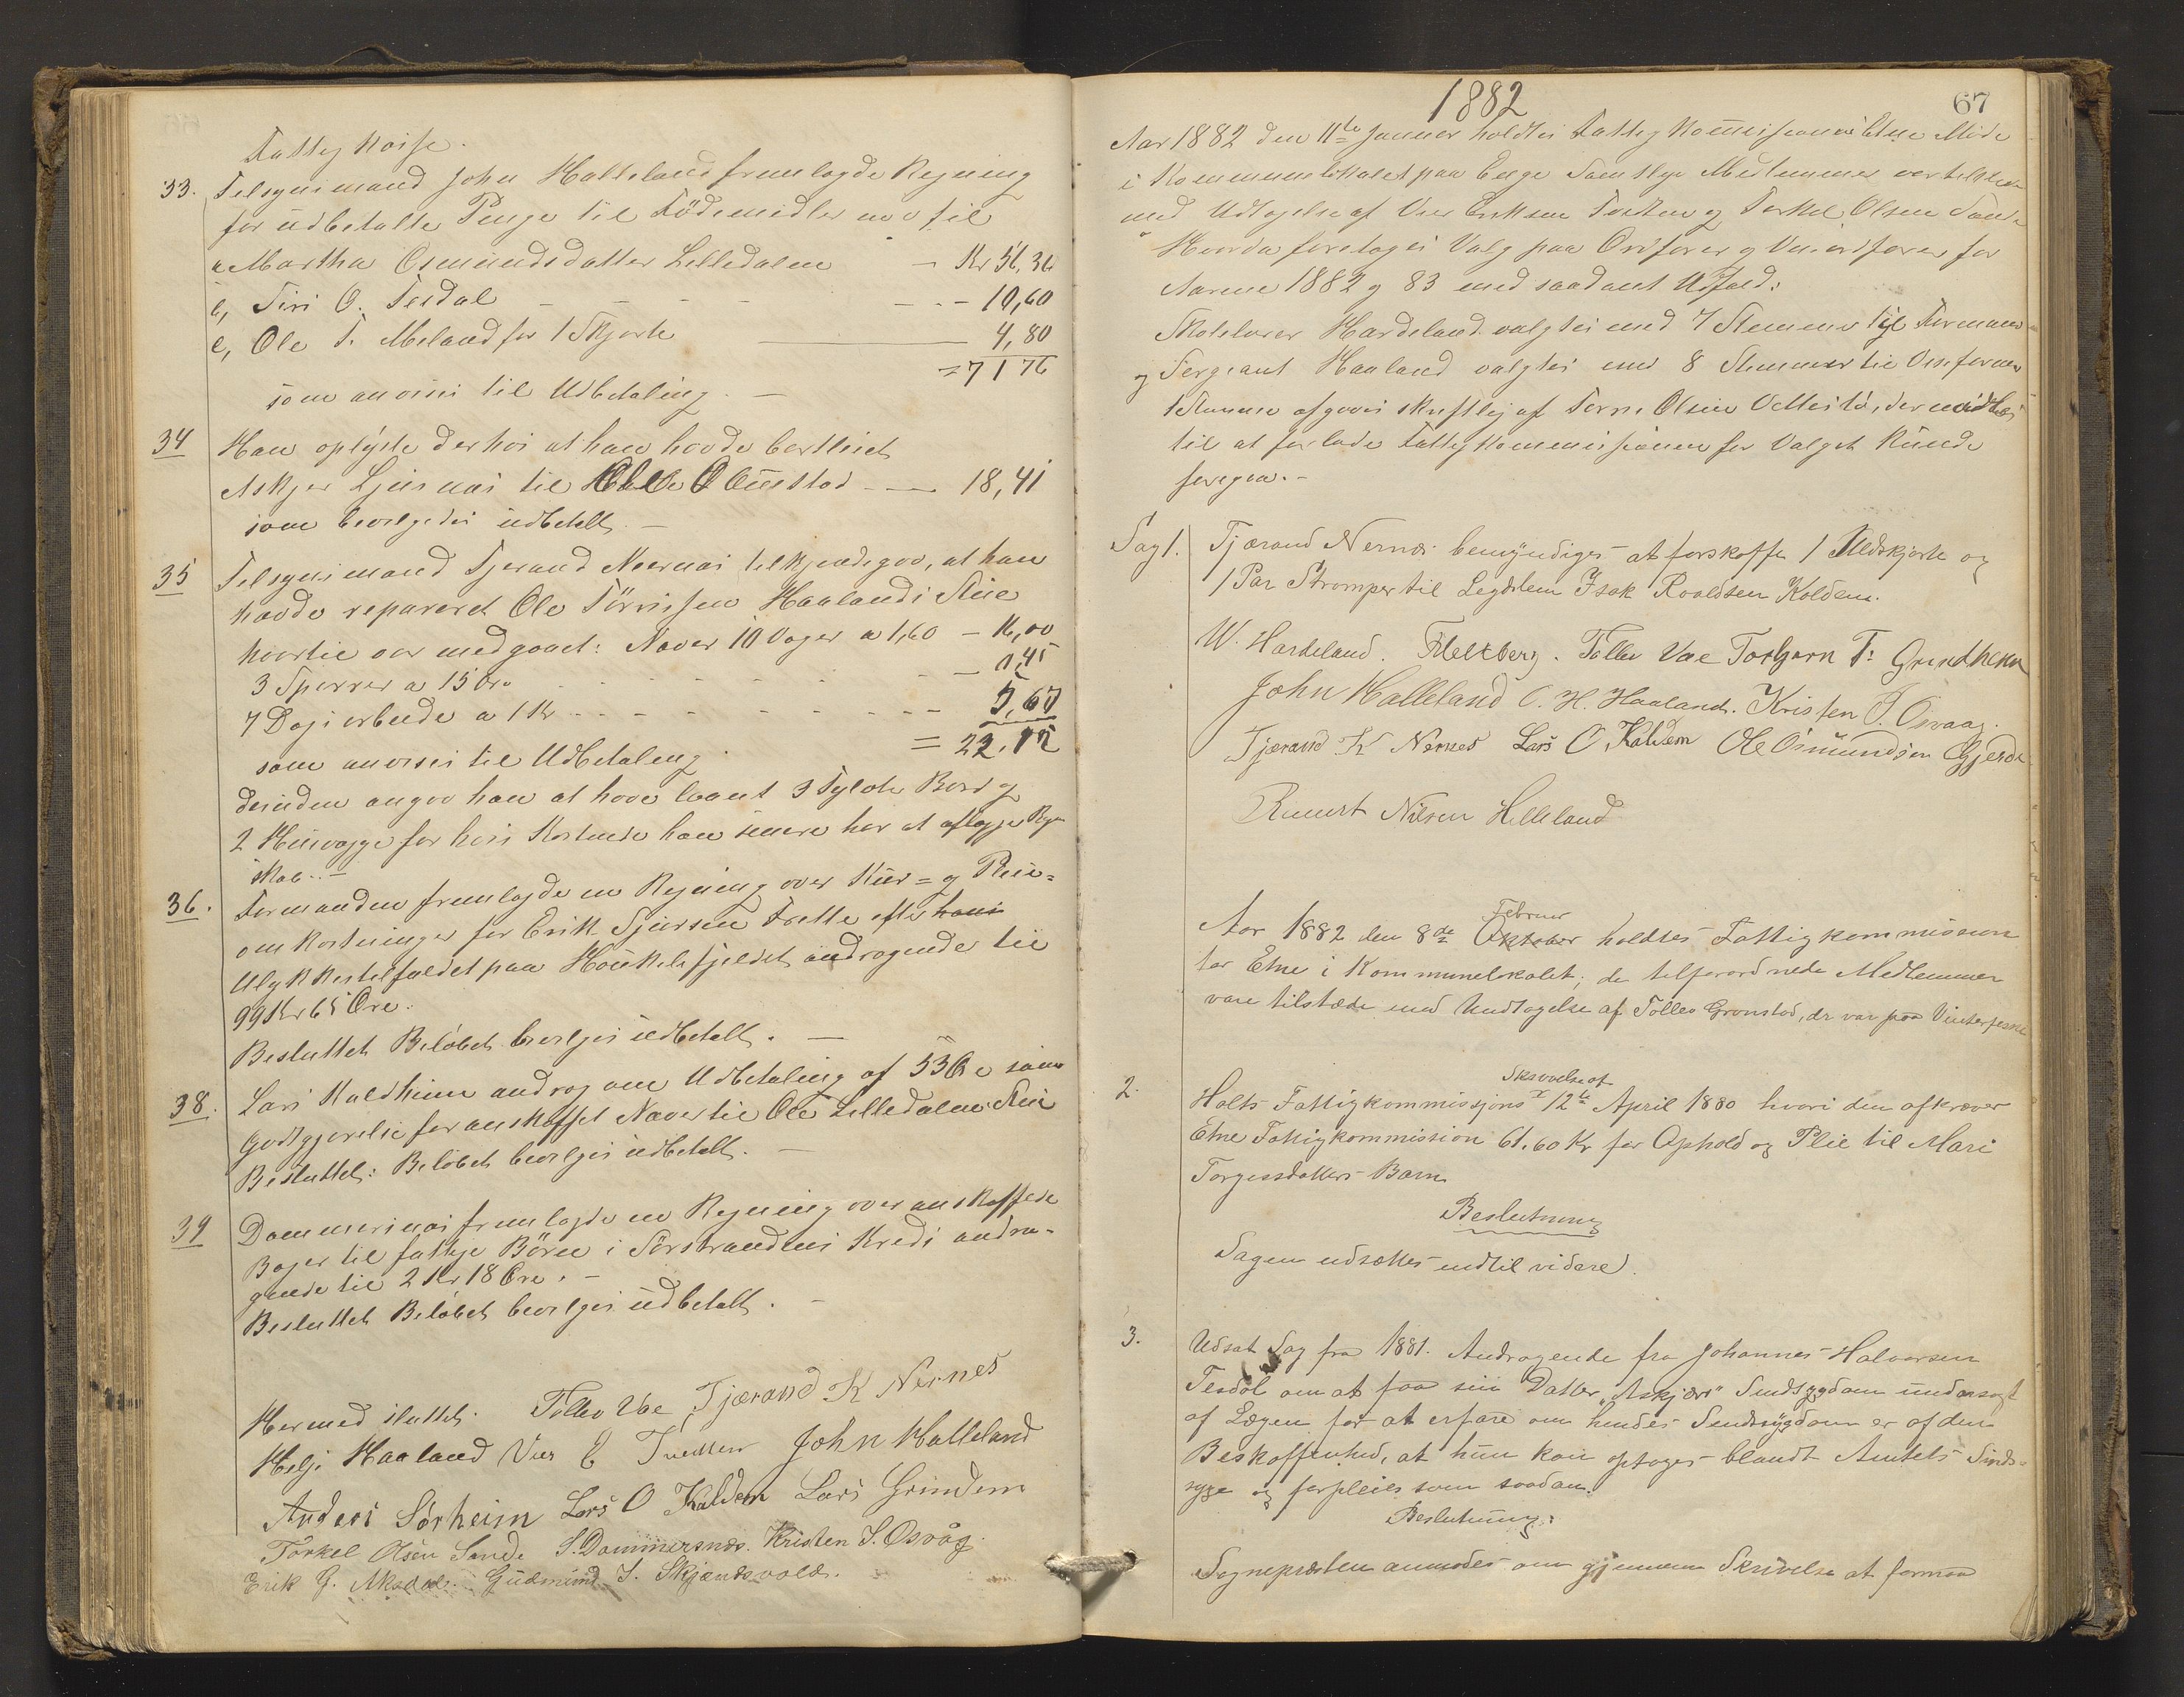 Fattigkasse.
33. Tilsynsmand John Halleland fremlagde Regning
for udbetalte Penge til Födemidler m v til
a Martha Osmundsdatter Lilledalen — Kr 56,36
b, Siri O. Tesdal - - - - 10,60
c, Ole T. Meland for 1 Skjorte — 4,80
= 71 76
som anvises til Udbetaling. —
34 Han oplyste derhos at han havde bortleiet
Askjer Ljusnæs til Ole Ulmestad — 18,41
som bevilgedes udbetalt. —
35 Tilsynsmand Tjerand Nernæs tilkjendegav, at han
havde repareret Ole Törrissen Haalands Stue
hvortil var medgaaet: Never 10 Voger a 1,60 — 16,00
3 Sperrer a 15 Öre - - - - 0,45
7 Dagsarbeide a 1 Kr - - - - 5,67
som anvises til Udbetaling = 22.12
desuden angav han at have laant 3 Tylvter Bord og
2 for hvis Kostende han senere har at aflægge Regn-
skab. —
36. Formanden fremlagde en Regning over Kur= og Pleie=
omkostninger for Erik Sjursen Frette efter hans
Ulykkestilfældet paa Haukelifjeldet andragende til
99 Kr 65 Öre.
Besluttet Belöbet bevilges udbetalt. —
38. Lars Kaldheim androg om Udbetaling af 53 Öre som
Godtgjörelse for anskaffet Never til Ole Lilledalens Stue
Besluttet: Belöbet bevilges udbetalt. —
39 Dommersnæs fremlagde en Regning over anskaffede
Böger til fattige Börn i Sörstrandens Kreds andra-
gende til 2 Kr 18 Öre. —
Besluttet Belöbet bevilges udbetalt. —
Hermed sluttet. Tollev Vae Tjærand K Nernes
Helje Haaland Vier E John Halleland
Anders Sörheim Lars O Kaldem Lars Grindem
Torkel Olsen Sande S. Dommersnæs. Kristen S. Osvåg.
Erik G. Gudmund J. Skjændsvold.
1882
67
Aar 1882 den 11te Januar holdtes Fattigkommission i Etne Möde
i Kommunelokalet paa Enge Samtlige Medlemmer var tilstede
med Udtagelse af Vier Eriksen og Torkel Olsen Sande
Hvorda foretoges Valg paa Ordförer og Viceordförer for
Aarene 1882 og 83 med saadant Udfald:
Skolelærer Hardeland valgtes med 7 Stemmer til Formand
og Sergeant Haaland valgtes med 8 Stemmer til Viseformand
1 Stemme afgaves skriftlig af Olsen der nödtes
til at forlade Fattigkommissionen för Valget kunde
foregaa. —
Sag 1. Tjærand Nernes bemyndiges at forskaffe 1 Uldskjorte og
1 Par Strömper til Lægdslem Isak Roaldsen Koldem.
W. Hardeland. F. Meltberg. Tollev Vae Torbjørn T: Grindheim
John Halleland O. H. Haaland. Kristen S. Osvaag.
Tjærand K Nernes Lars O Kaldem Ole Osmundsen Gjerde
Nilsen Helleland
Aar 1882 den 8de Oktober Februar holdtes Fattigkommission
for Etne i Kommunelokalet; de tilforordnede Medlemmer
vare tilstæde med Undtagelse af Tollev Grönstad, der var paa Vinterfeske
2. Holts Fattigkommissjons Skrivelse af 12te April 1880 hvori den afkræver
Etne Fattigkommission 61.60 Kr for Ophold og Pleie til Mari
Torgersdatters Barn
Beslutning
Sagen udsættes indtil videre.
3. Udsat Sag fra 1881. Andragende fra Johannes Halvorsen
Tesdal om at faa sin Datter "Askjærs" Sindsygdom undersögt
af Lægen for at erfare om hendes Sindssygdom er af den
Beskaffenhed, at hun kan optages blandt Amtets Sinds-
syge og forpleies som saadan.
Beslutning:
Sognepræsten anmodes om gjennem Skrivelse at formaa